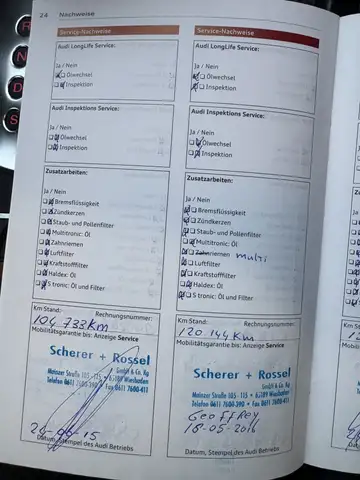 24 Nachweise
Service-Nachweise
Audi LongLife Service:
Ja / Nein
Ölwechsel
Inspektion
Audi Inspektions Service:
Ja / Nein
Ölwechsel
Inspektion
Zusatzarbeiten:
Ja / Nein
Bremsflüssigkeit
Zündkerzen
Staub- und Pollenfilter
Multitronic: Öl
Zahnriemen
Luftfilter
Kraftstofffilter
Haldex: Öl
S tronic: Öl und Filter
Km Stand: Rechnungsnummer:
104 733 Km
Mobilitätsgarantie bis: Anzeige Service
Scherer + Rossel
GmbH & Co. Kg
Mainzer Straße 105-115 • 65189 Wiesbaden
Telefon 0611 7600-390 • Fax 0611 7600-411
26-06-15
Datum, Stempel des Audi Betriebs
Service-Nachweise
Audi LongLife Service:
Ja / Nein
Ölwechsel
Inspektion
Audi Inspektions Service:
Ja / Nein
Ölwechsel
Inspektion
Zusatzarbeiten:
Ja / Nein
Bremsflüssigkeit
Zündkerzen
Staub- und Pollenfilter
Multitronic: Öl
Zahnriemen multi
Luftfilter
Kraftstofffilter
Haldex: Öl
S tronic: Öl und Filter
Km Stand: Rechnungsnummer:
120.144 Km
Mobilitätsgarantie bis: Anzeige Service
Scherer + Rossel
GmbH & Co. Kg
Mainzer Straße 105-115 • 65189 Wiesbaden
Telefon 0611 7600-390 • Fax 0611 7600-411
Geoffrey
18-05-2016
Datum, Stempel des Audi Betriebs